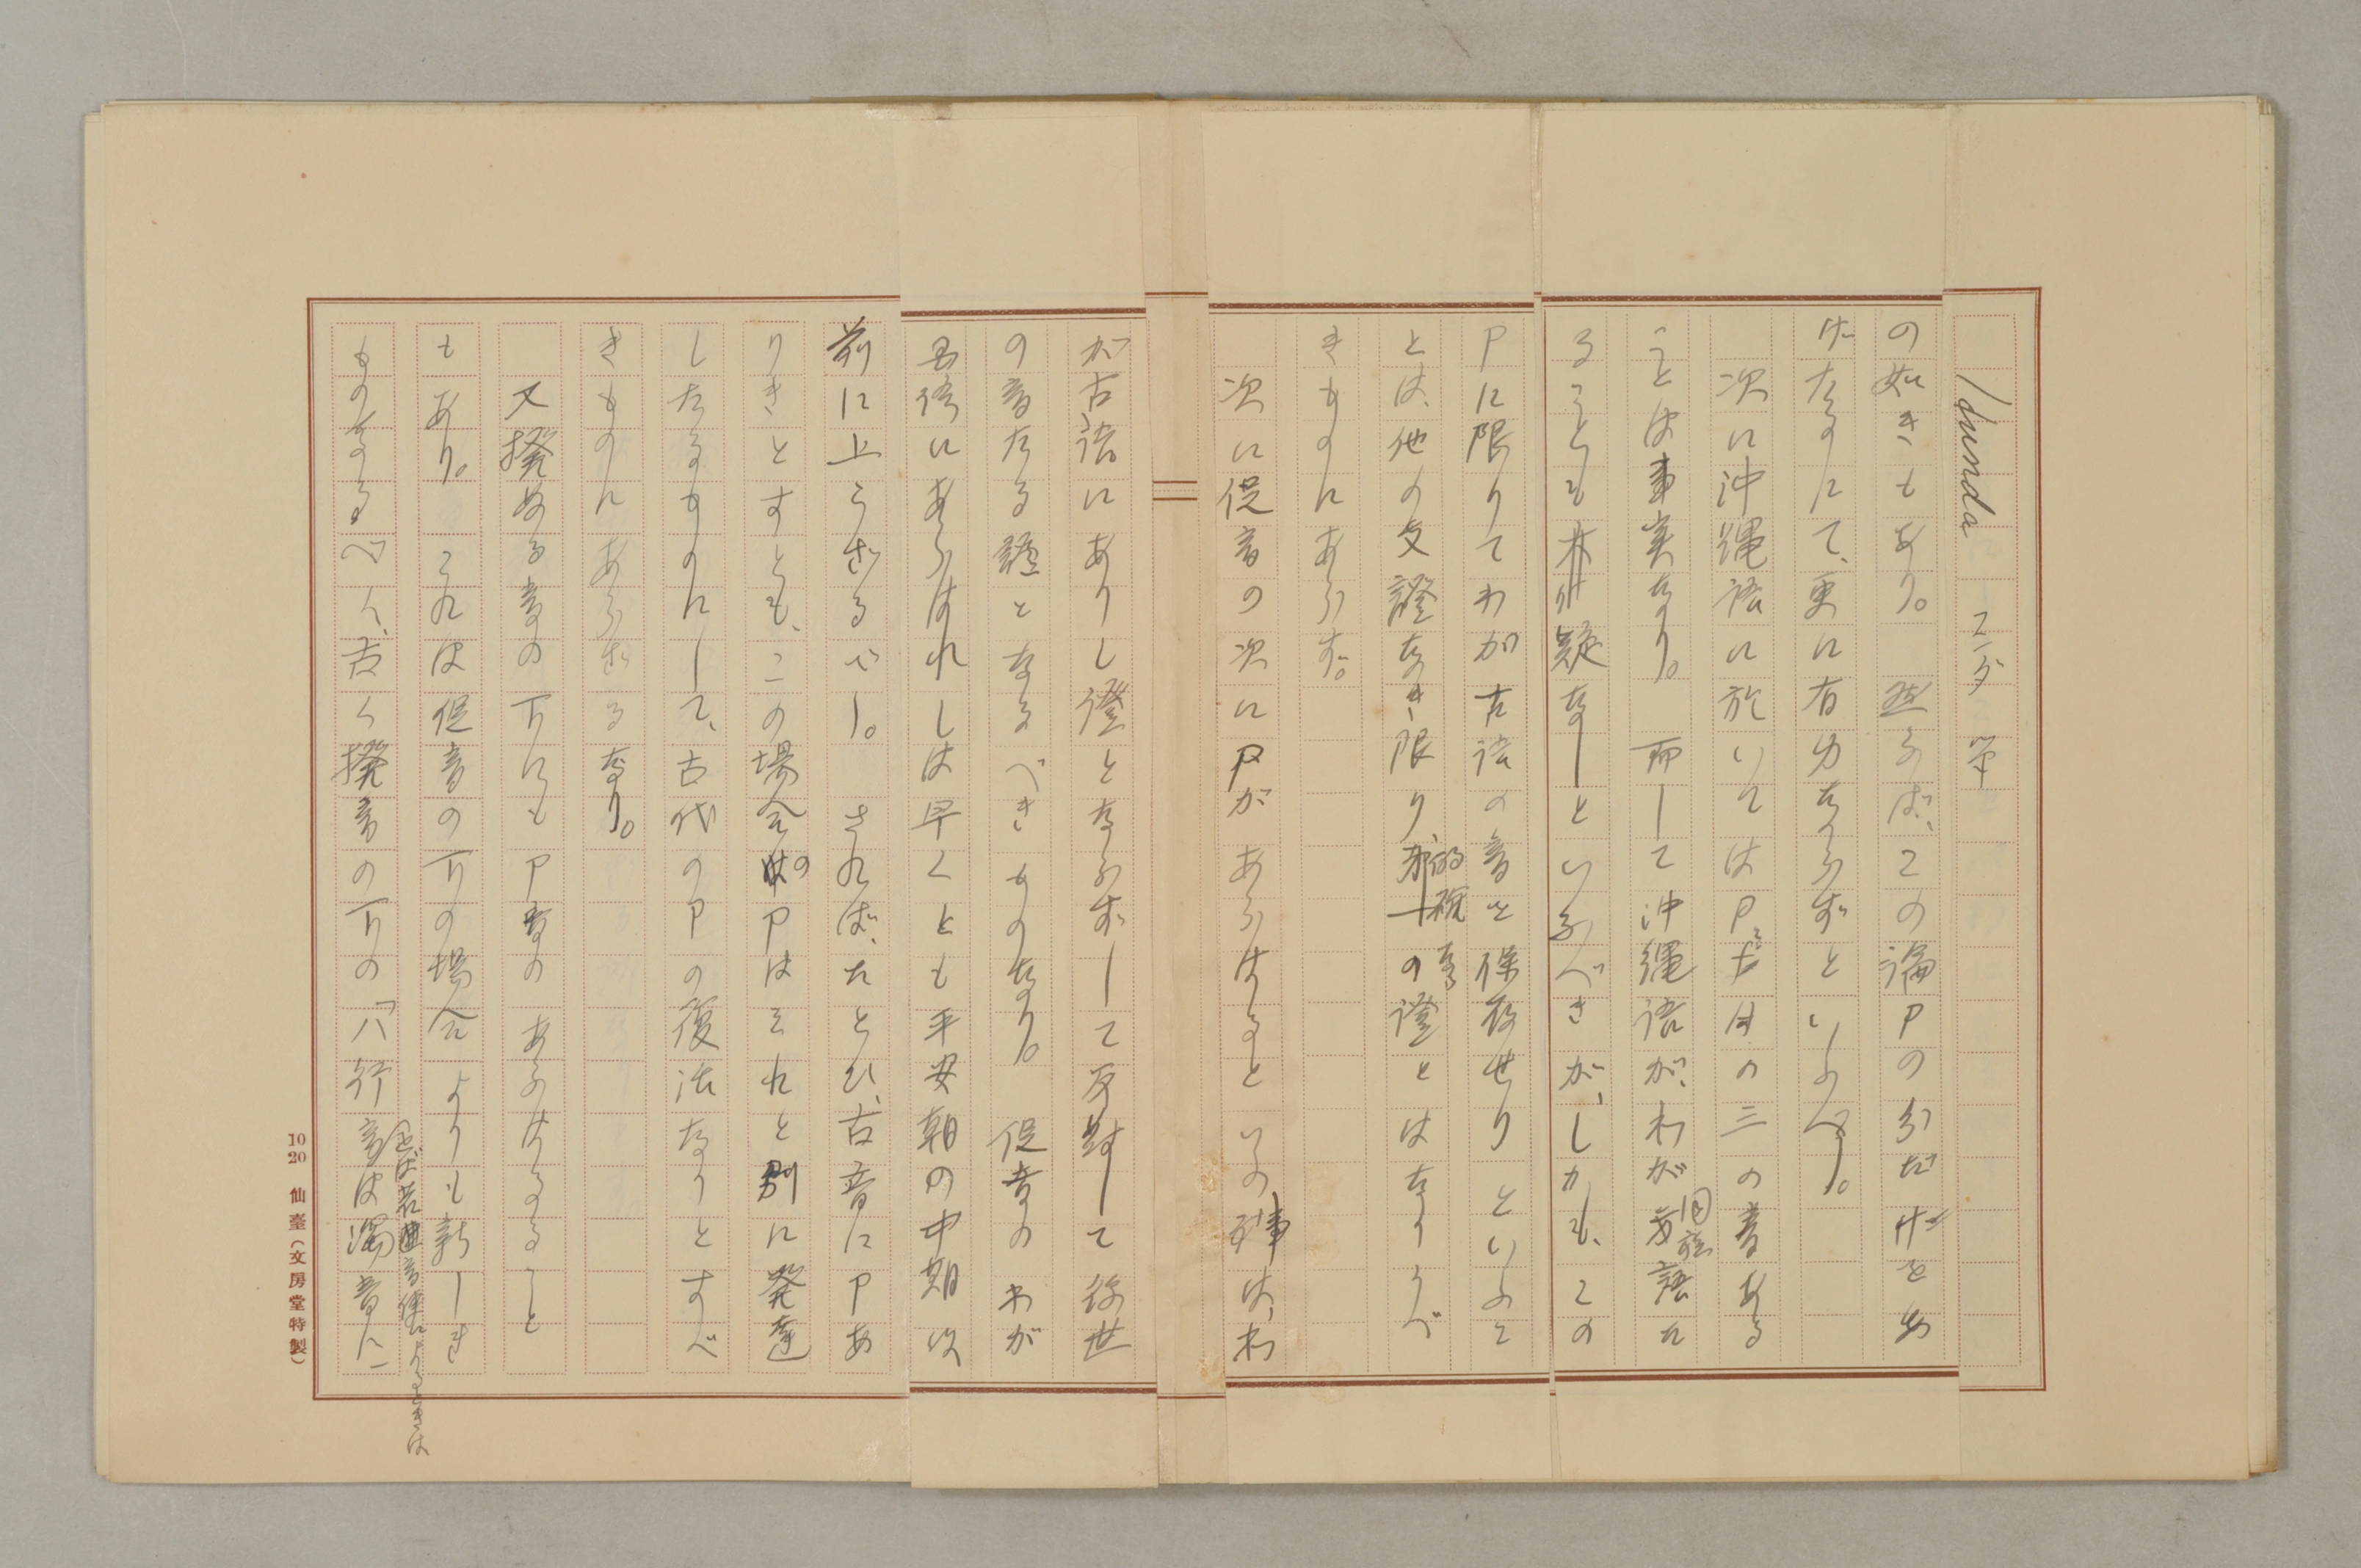 Idunda エダ 等
の如きもあり。 然らば、この論Pの分だけをあ
げたるにて、更に有力ならずといふべし。
次に沖縄語に於いてはPとFとHの三の音ある
ことは事実なり。 而して沖縄語が、わが同族語た
ることも亦疑なしといふべきが、しかも、この
Pに限りてわが古語の音を保存せりといふこ
とは、他の文證なき限り、的確なるの證とはなりうべ
きものにあらず。
次に促音の次にPがあらはるといふ事は、わ
が古語にありし證とならずして反対して後世
の音たる證となるべきものなり。 促音のわが
国語にあらはれしは早くとも平安朝の中期以
前に上らざるべし。 されば、たとひ、古音にPあ
りきとすとも、この場合のPはそれと別に発達
したるものにして、古代のPの復活なりとすべ
きものにあらざるなり。
又撥ぬる音の下にもP音のあらはるること
もあり。 これは促音の下の場合よりも新しき
ものなるべく、古く撥音の下の「ハ行音は濁音に
10 20 仙臺(文房堂特製)